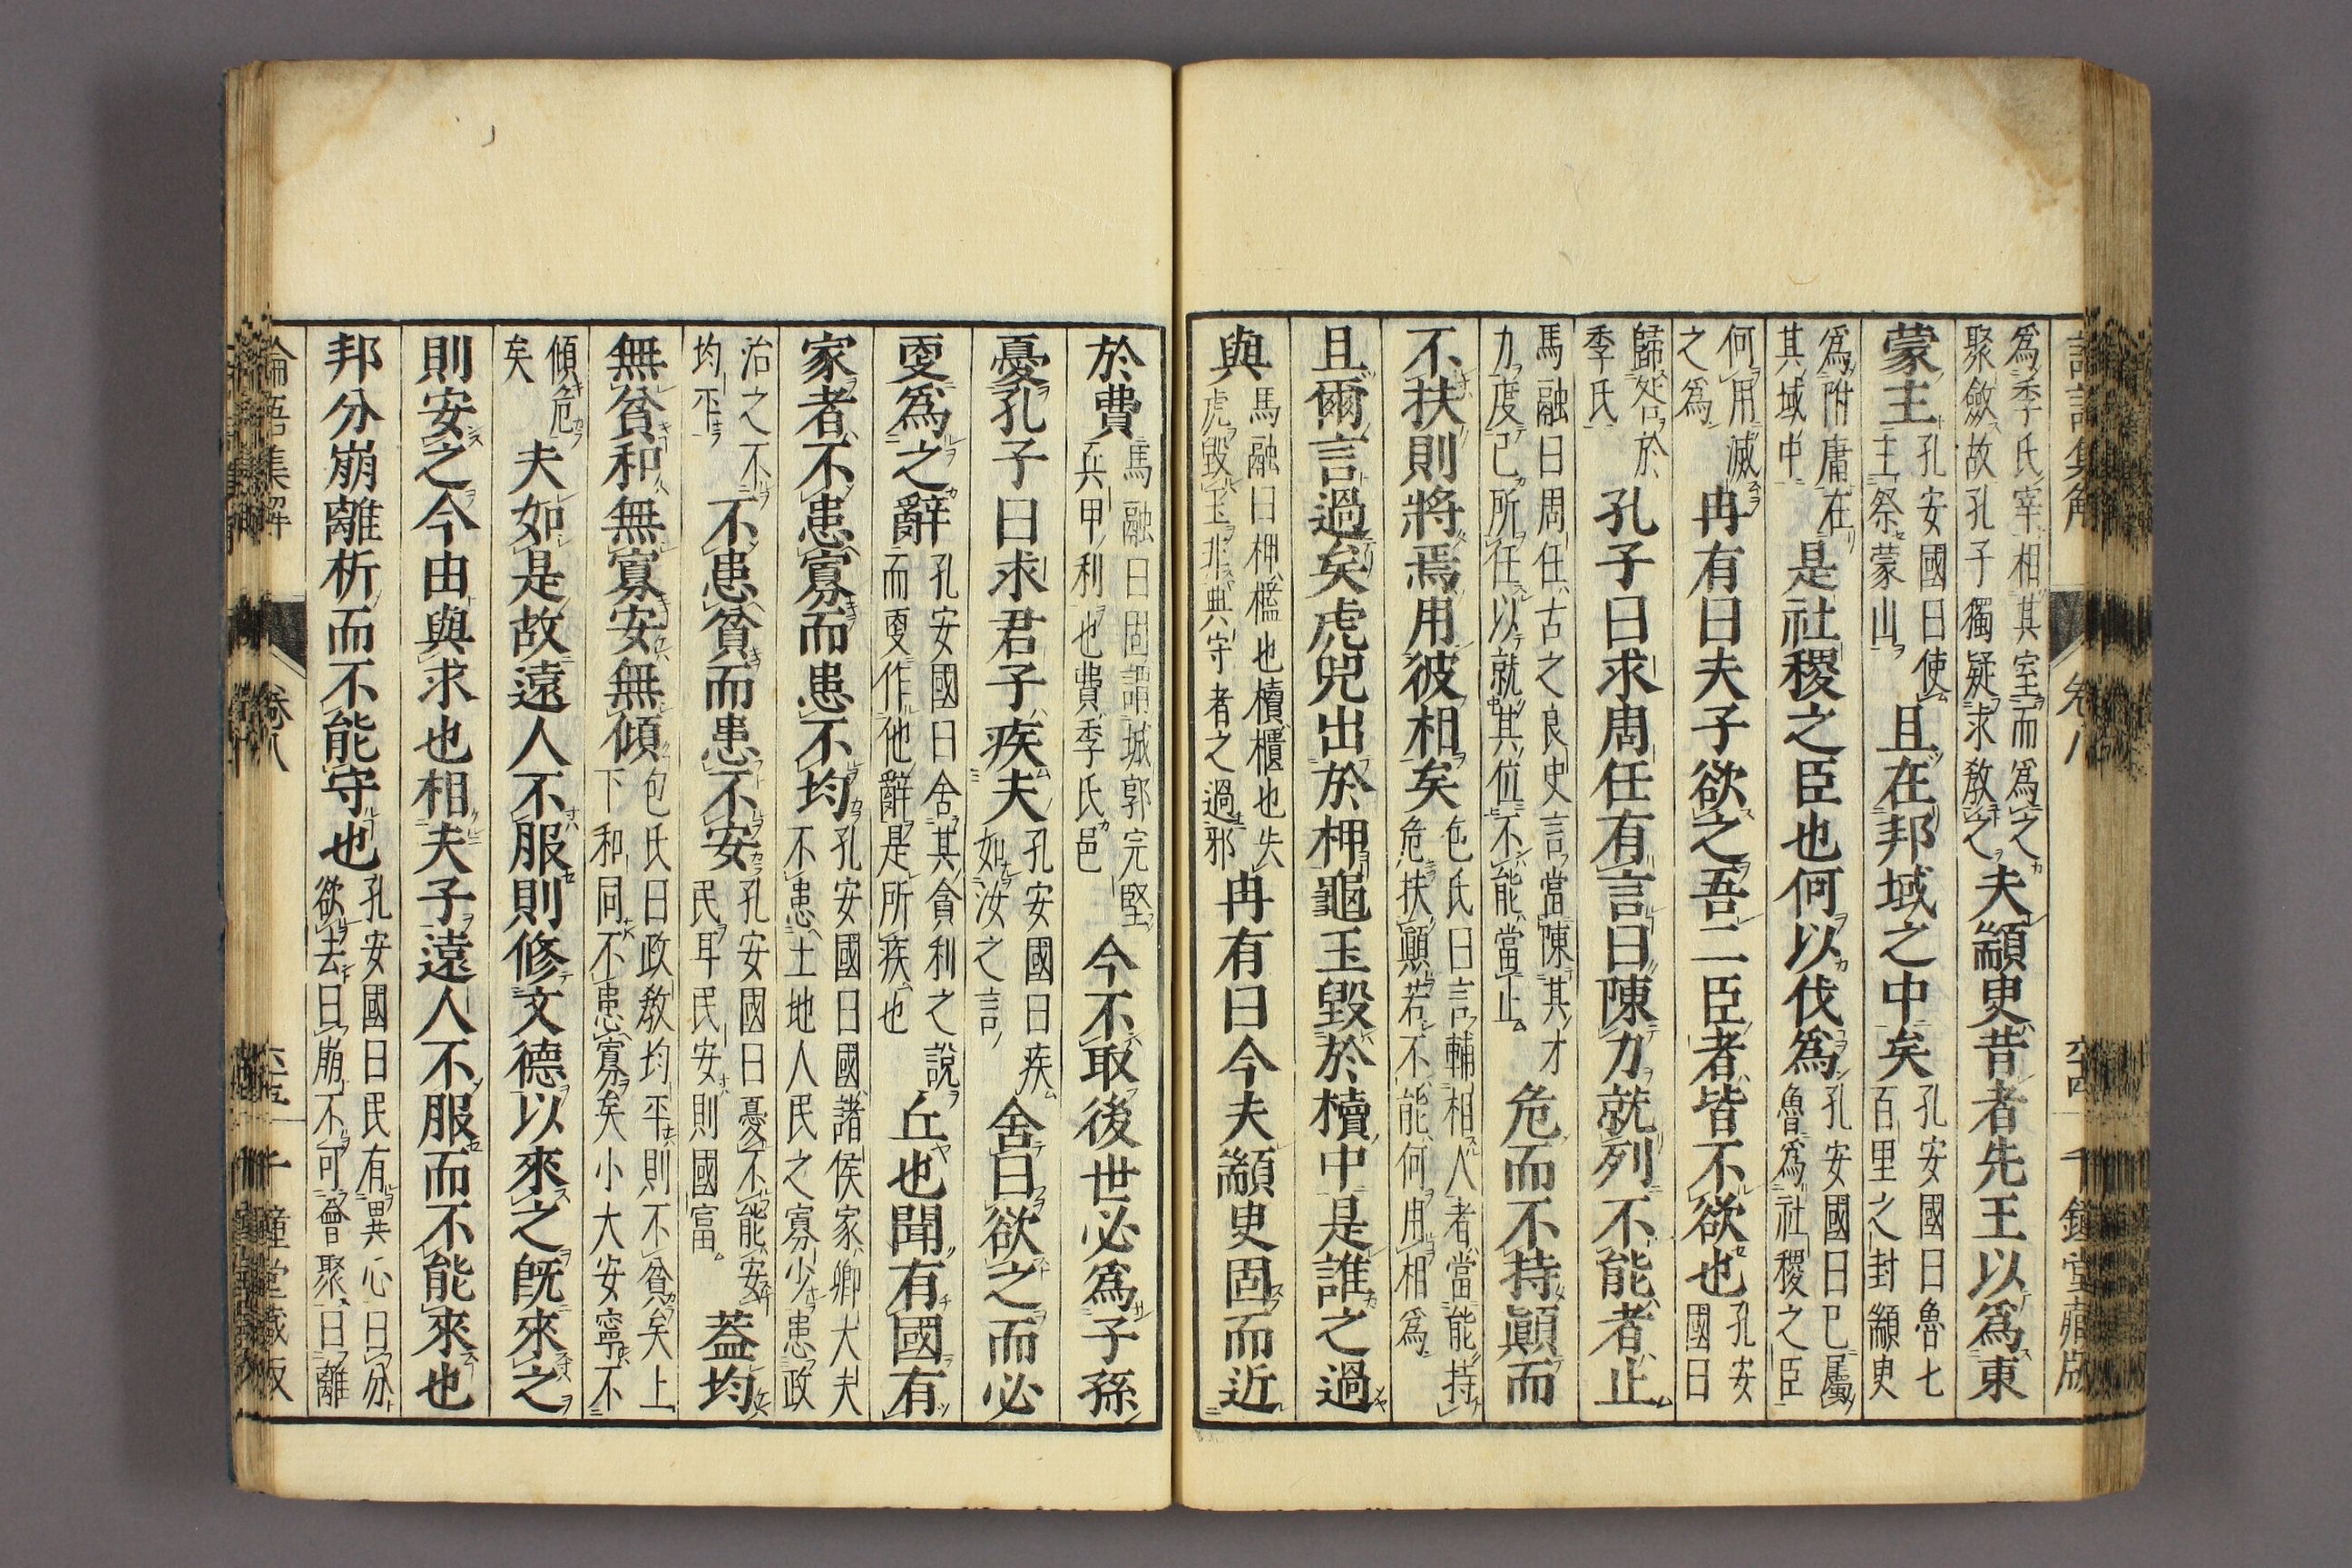 爲季氏宰相其室而爲之聚斂故孔子獨疑求敎之夫顓臾昔者先王以爲東
蒙主孔安國曰使主祭蒙山且在邦域之中矣孔安國曰魯七百里之封顓臾
爲附庸在其域中是社稷之臣也何以伐爲孔安國曰已屬魯爲社稷之臣
何用滅之爲冉有曰夫子欲之吾二臣者皆不欲也孔安國曰
歸咎於季氏孔子曰求周任有言曰陳力就列不能者止
馬融曰周任古之良史言當陳其才力度己所任以就其位不能當止危而不持顚而
不扶則將焉用彼相矣包氏曰言輔相人者當能持危扶顚若不能何用相爲
且爾言過矣虎兕出於柙龜玉毀於櫝中是誰之過
與馬融曰柙檻也櫝櫃也失虎毀玉非典守者之過邪冉有曰今夫顓臾固而近
於費馬融曰固謂城郭完堅兵甲利也費季氏邑今不取後世必爲子孫
憂孔子曰求君子疾夫孔安國曰疾如汝之言舍曰欲之而必
更爲之辭孔安國曰舍其貪利之說而更作他辭是所疾也丘也聞有國有
家者不患寡而患不均孔安國曰國諸侯家卿大夫不患土地人民之寡少患政
治之不均平不患貧而患不安孔安國曰憂不能安民耳民安則國富蓋均
無貧和無寡安無傾包氏曰政敎均平則不貧矣上下和同不患寡矣小大安寧不
傾危矣夫如是故遠人不服則修文德以來之旣來之
則安之今由與求也相夫子遠人不服而不能來也
邦分崩離析而不能守也孔安國曰民有異心曰分欲去曰崩不可會聚曰離
論語集解 卷八 千鍾堂藏版